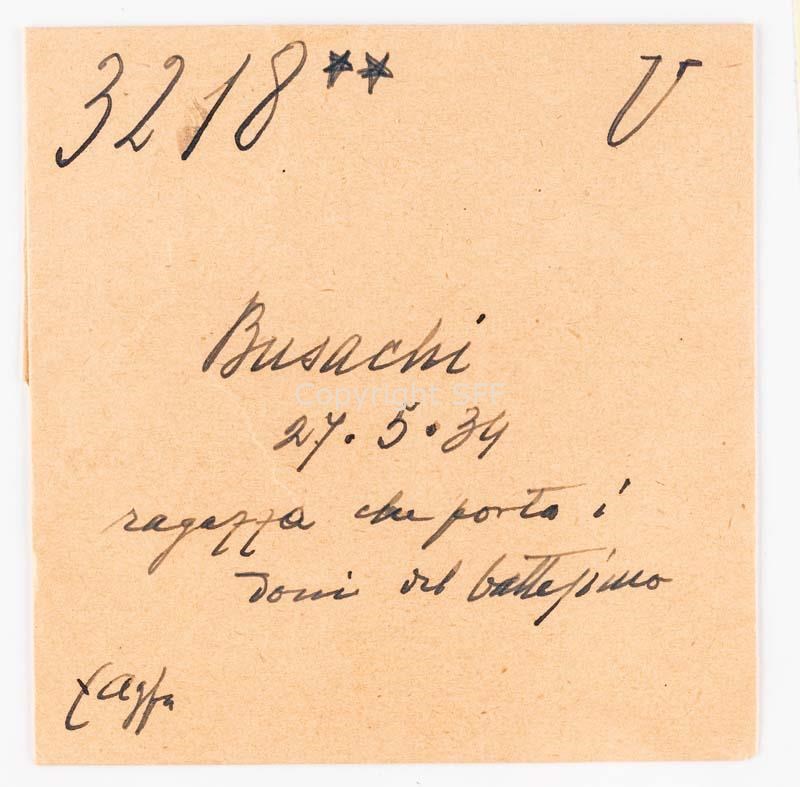 3218** V
Busachi
Copyright SFF
27.5.34
ragazza che porta i
doni del battesimo
Agfa